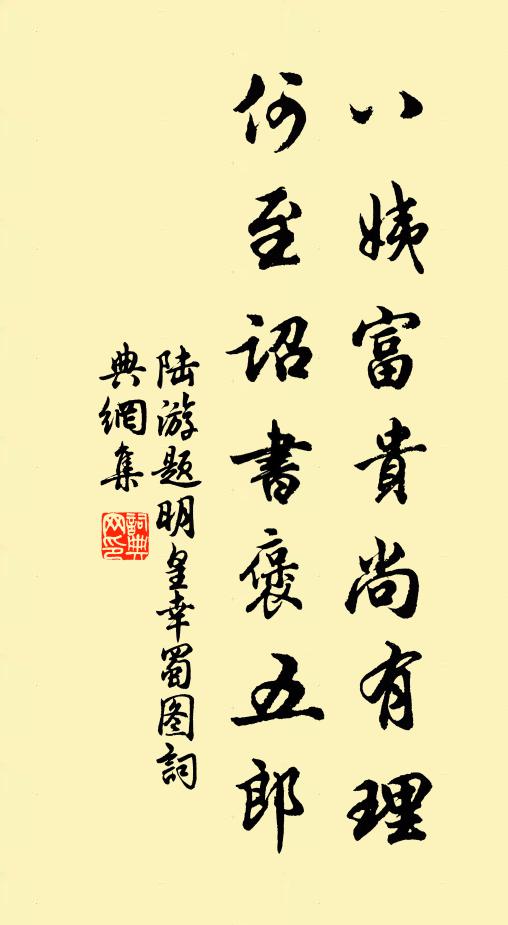 八姨富貴尚有理
何至詔書褒五郎
陆游题明皇幸蜀图詞
典網集
詞典
网印